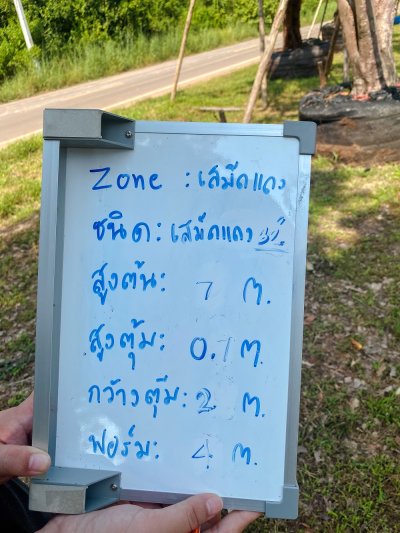 Zone : เสม็ดแดง
ชนิด : เสม็ดแดง
สูงต้น : 7 ม.
สูงตุ้ม : 0.7 ม.
กว้างตุ้ม : 2 ม.
ฟอร์ม : 4 ม.